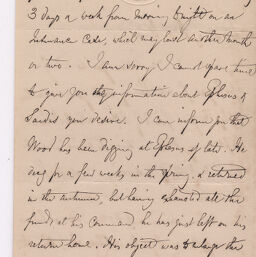 3 days a week from morning to night on an
Insurance Case, which may last another month
or two. I am sorry I cannot spare time
to give you the information about Ephesus &
you desire. I can inform you that
Wood has been digging at Ephesus of late. He
dug for a few weeks in the Spring, & returned
in the autumn, but having exhausted all the
funds at his Command, he has just left on his
return home. His object was to lay the